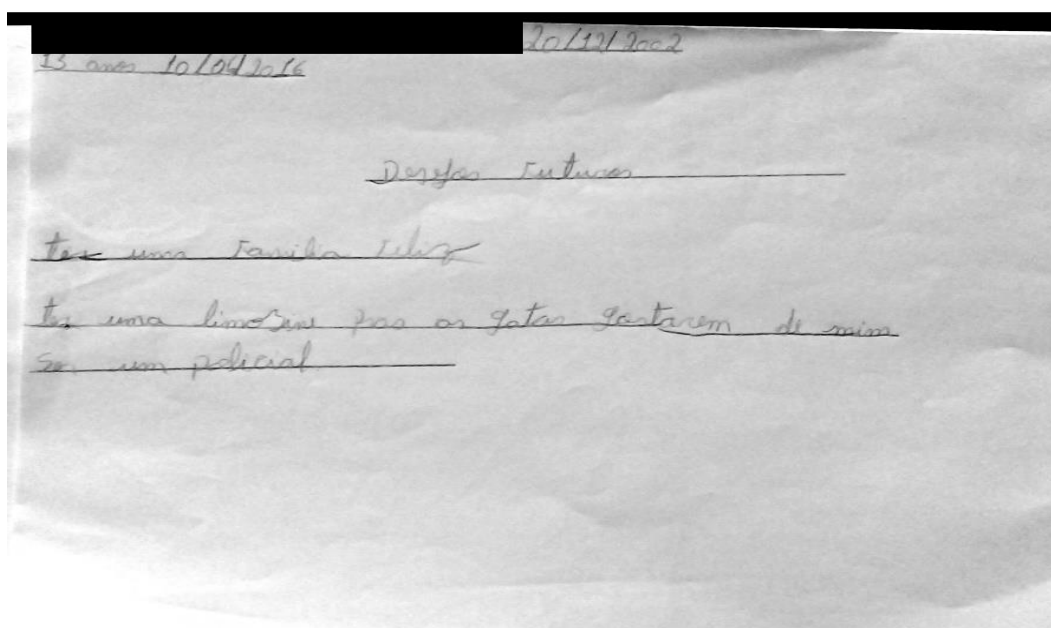 20/12/2002
13 anos 10/06/2016
Desejos Futuros
ter uma Familia Feliz
ter uma limozine pras as gatas gostarem de mim
ser um policial